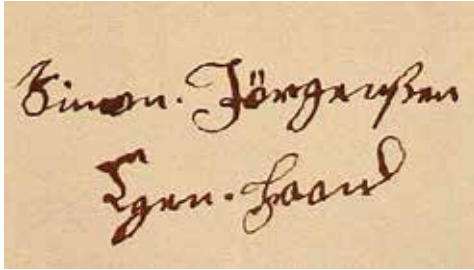 Simon. Jörgenßen
Egen. haand